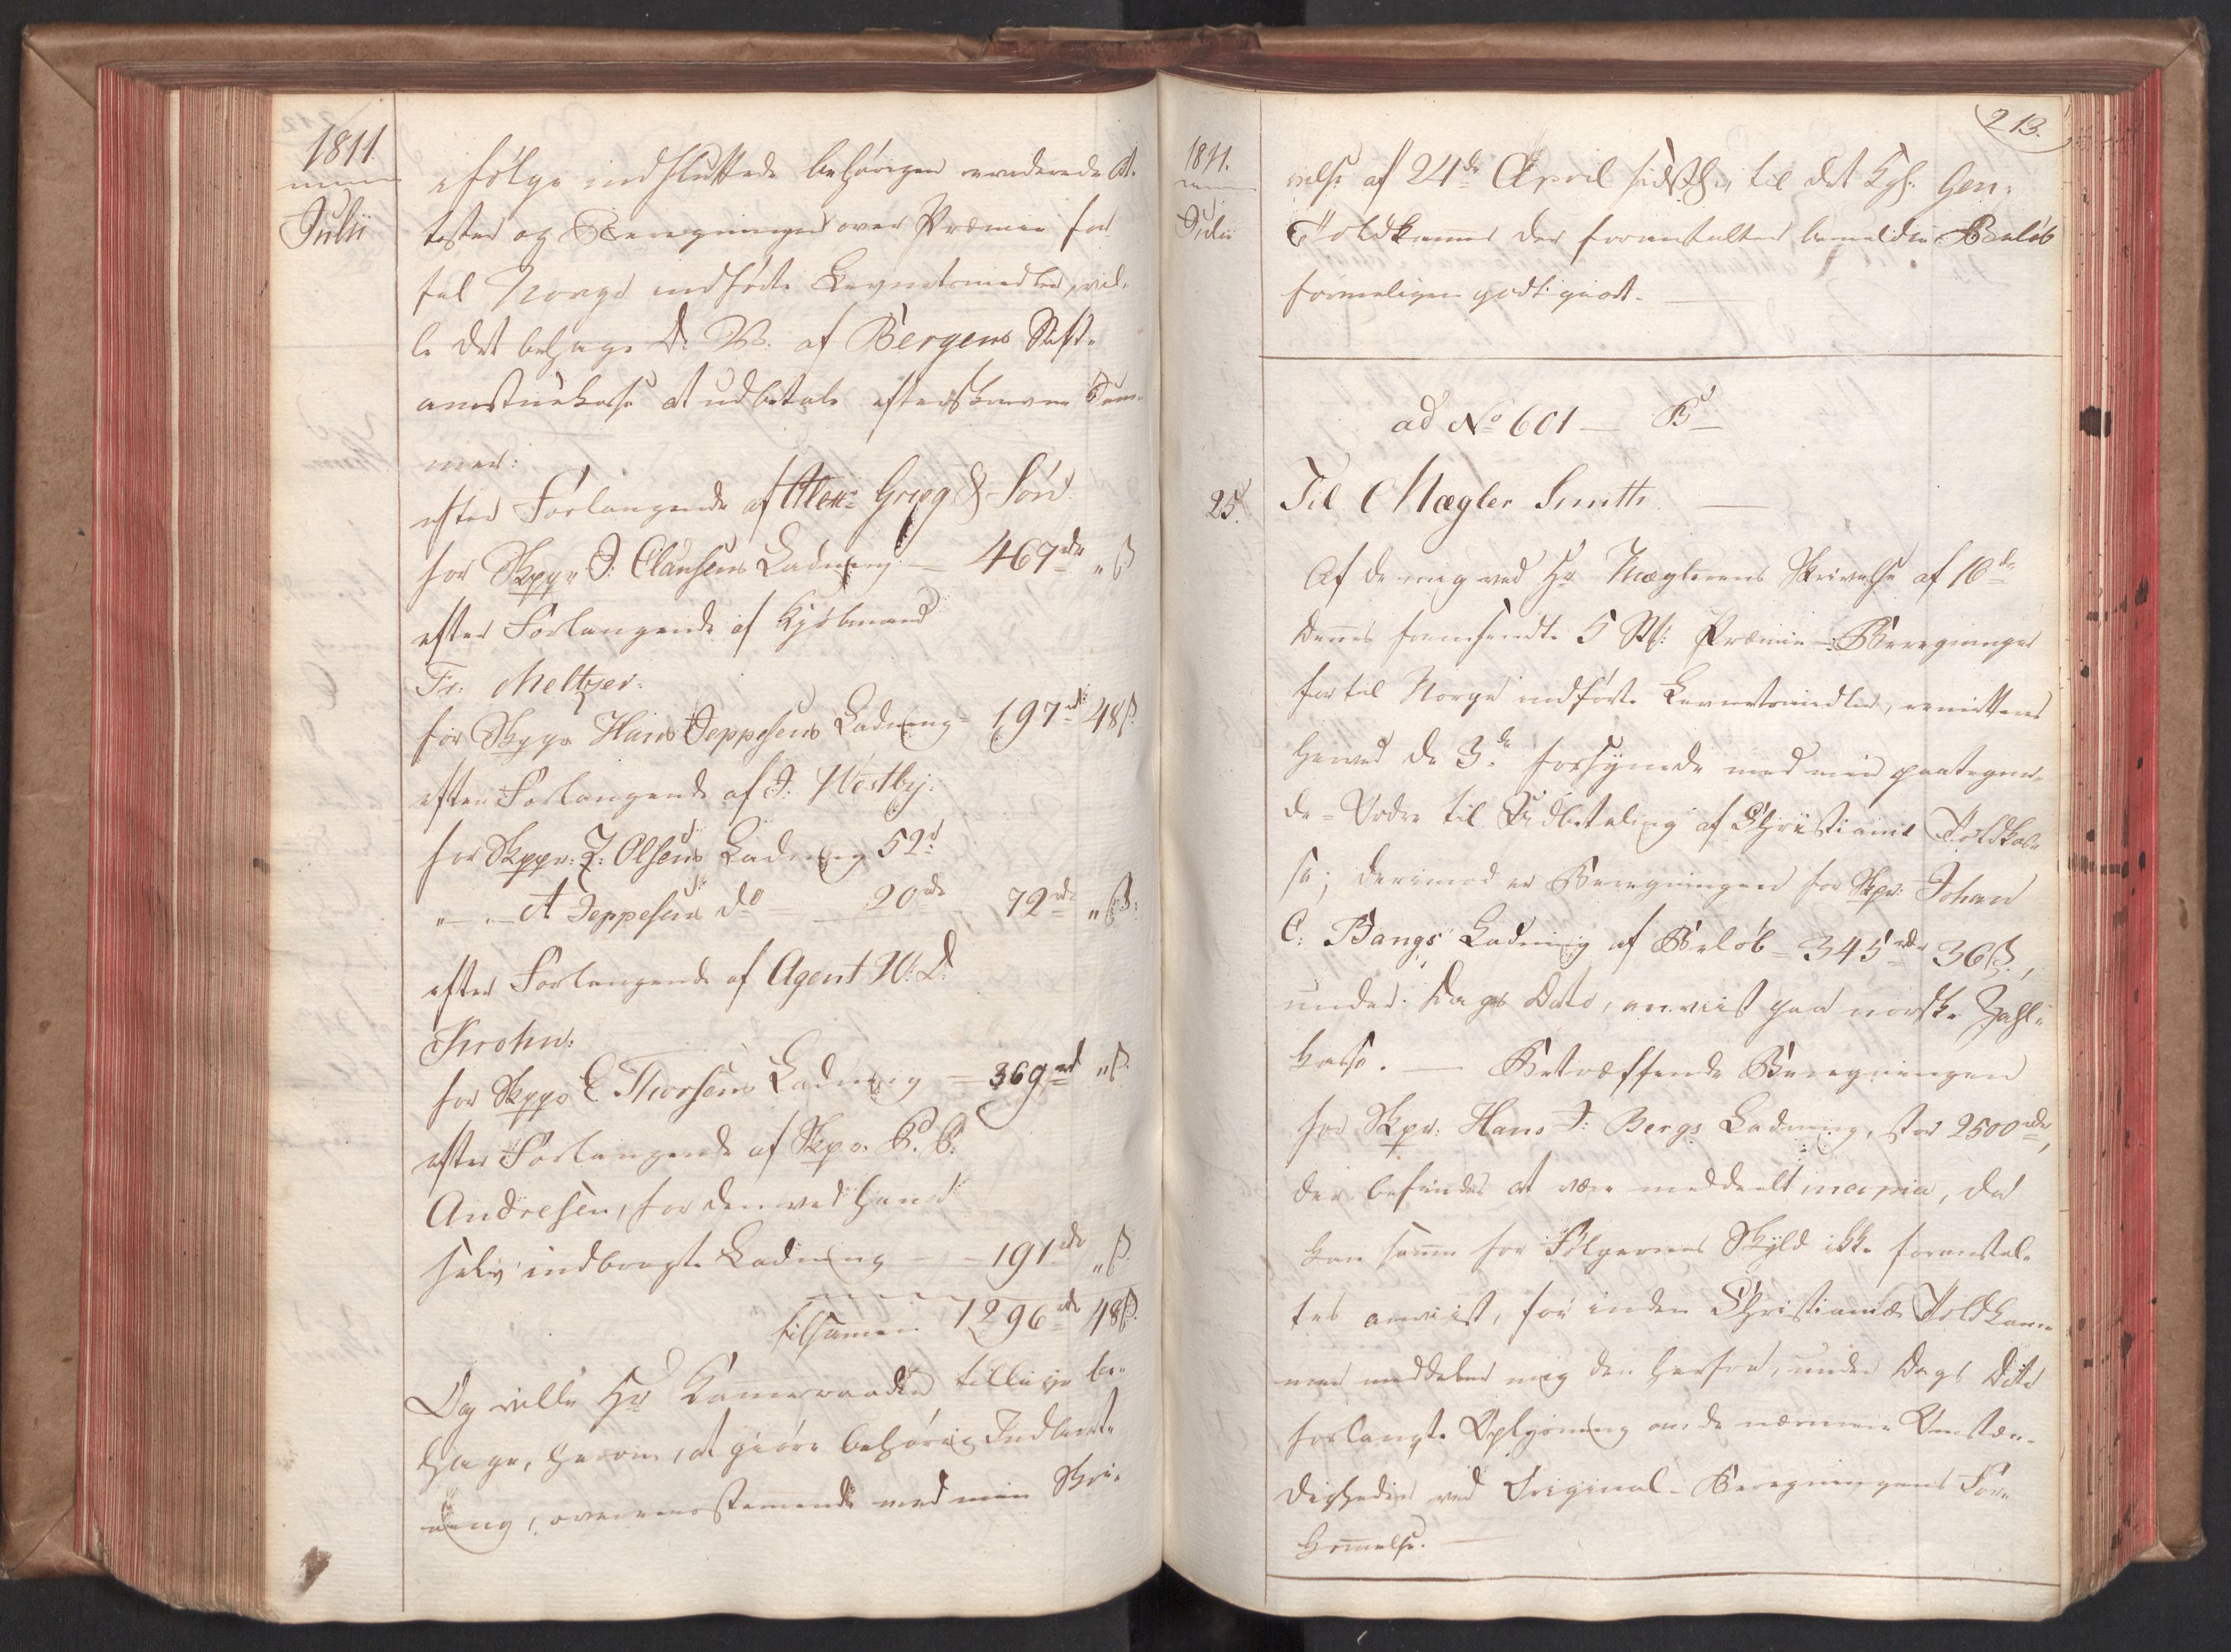 1811
Julii
ifölge indsluttede behörigen reviderede At-
tester og Beregninger over Præmie for
til Norge indførte Levnetsmidler, vil-
le det behage D. W. af Bergens Stift-
amtstuekasse at udbetale efterskrevne Sum-
mer:
efter Forlangende af Alexr Grieg & Sön
for Skppr J: Clausens Ladning – 467 rdr " ß
efter Forlangende af Kjöbmand
Fr. Meltzer.
for Skppr Hans Jeppesens Ladning – 197 rd 48 ß.
efter Forlangende af J: Westby:
for Skppr: J: Olsens Ladning 52 rd
" – A Jeppesens do – 20 rdr 72 rdr " ß.
efter Forlangende af Agent W: D:
Krohn:
for Skppr C Thorsens Ladning – 369 rd " ß.
efter Forlangende af Skpr. P. C.
Andresen, for den ved ham
selv indbragte Ladning – 191 rdr " ß.
tilsamen 1296 rdr 48 ß.
Og ville Hr Kammerraaden tillige be-
hage, herom, at giöre behörig Indberet-
ning, overensstemende med min Skri-
213.
1811.
Julii
velse af 24de April sidsth: til det Kgl. Gen:
Toldkamer der foranstalter bemeldte Belöb
formeligen godtgiort. –
ad No 601 – B
25. Til Mægler Smith –
Af de mig ved Hr Mæglerens Skrivelse af 10de
dennes fremsendte 5 St: Præmie-Beregninger
for til Norge indförte Levnetsmidler, remitteres
herved de 3de forsynede med min paategne-
de Ordre til Udbetaling af Christiania Toldkas-
se; derimod er Beregningen for Skpr: Johan
C: Bangs Ladning af Belöb – 345 rdr 36 ß.,
under Dags Dato, anviist paa norske Zahl-
kasse. – Betræffende Beregningen
for Skpr: Hans J: Bergs Ladning, stor 2500 rdr,
der befindes at være meddeelt in copia, da
kan samme for Fölgernes Skyld ikke foranstal-
tes anviist, för inden Christianiæ Toldkam-
mer meddeler mig den herfra, under Dags Dato
forlangte Oplysning om de nærmere Omstæn-
digheder ved Original-Beregningens For-
kommelse. –